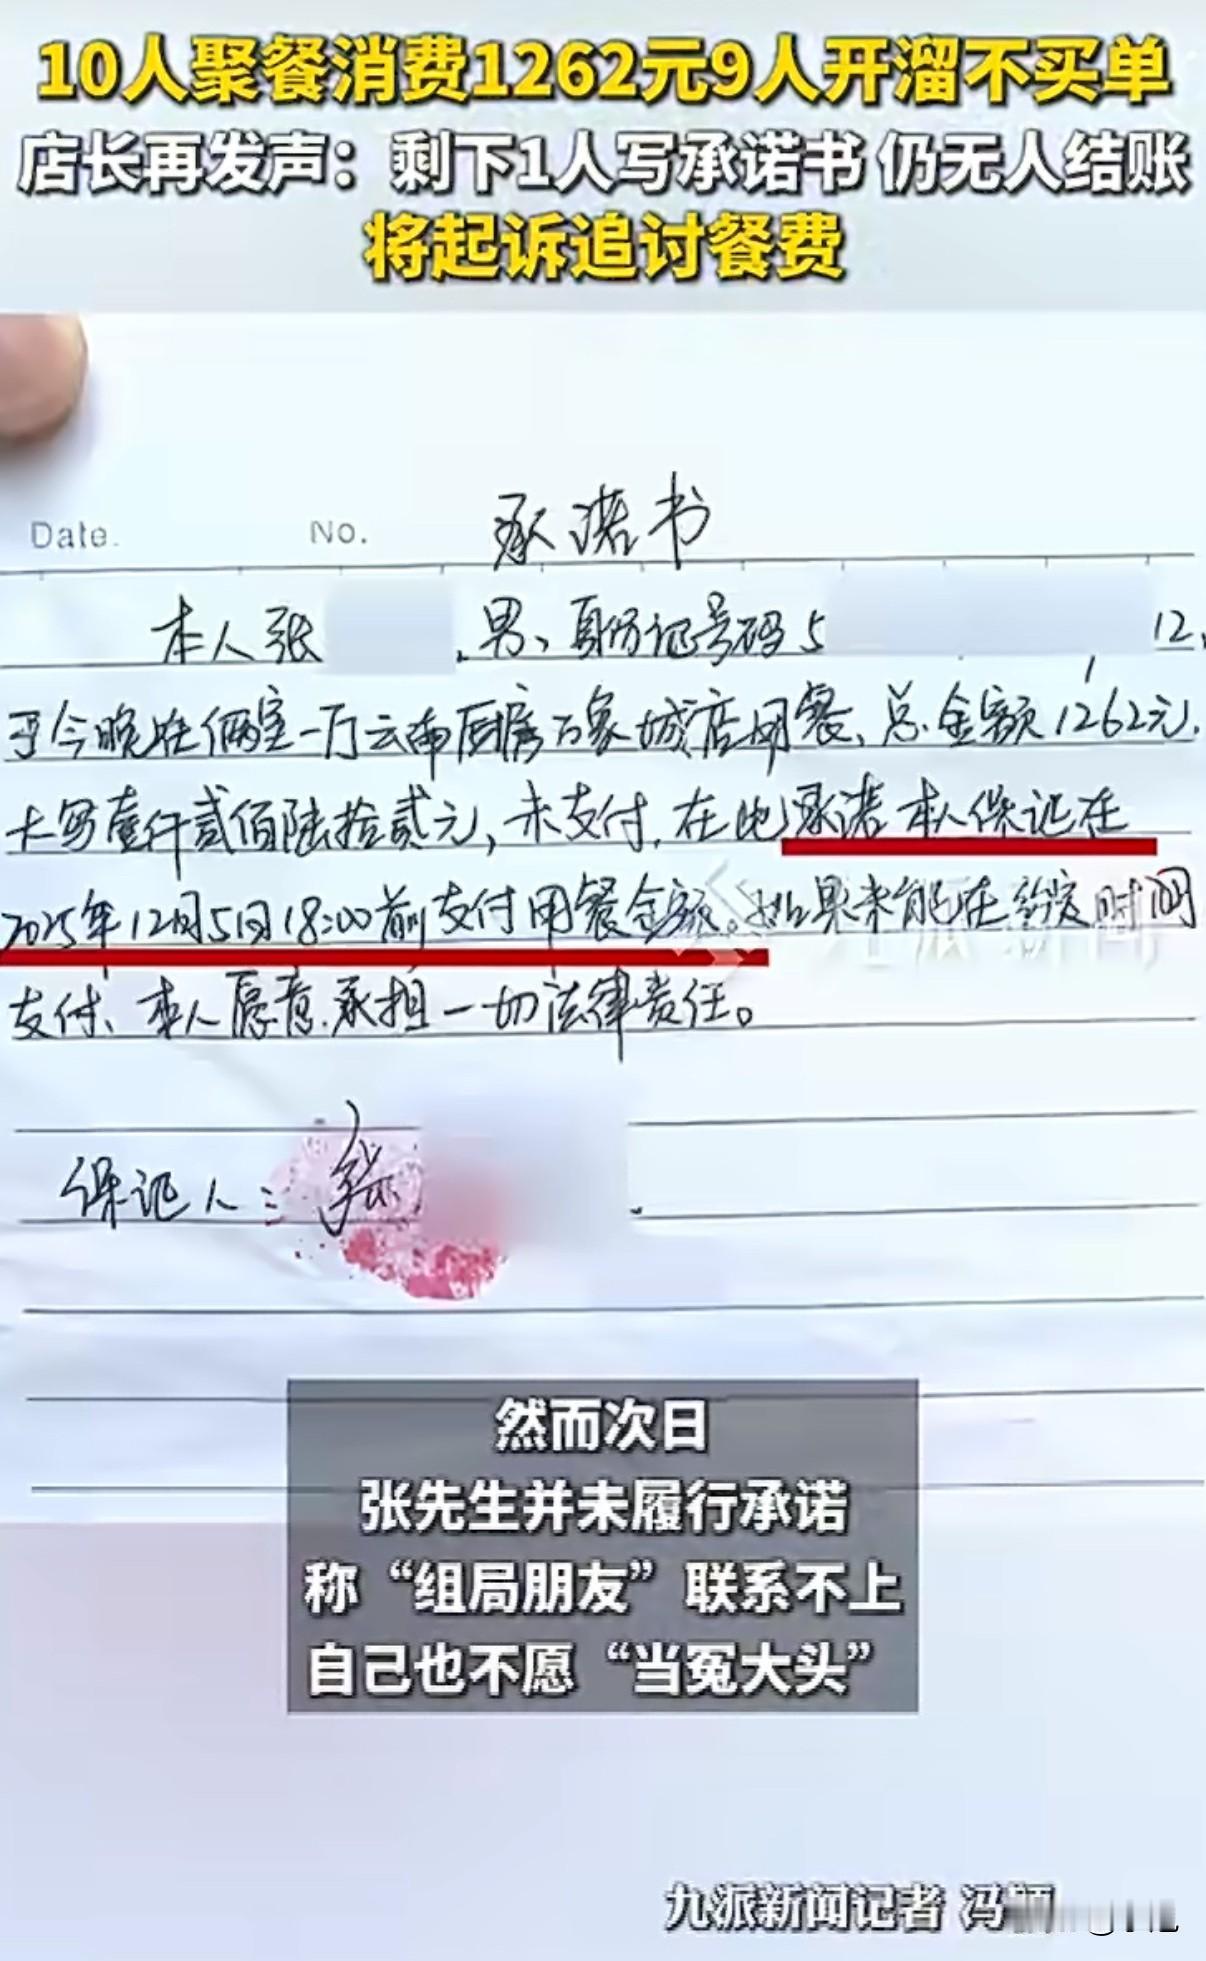 10人聚餐消费1262元9人开溜不买单
店长再发声：剩下1人写承诺书 仍无人结账
将起诉追讨餐费
Date.
No.
承诺书
本人张
，男、身份证号码5
12，
于今晚在俩室一厅云南厨房万象城店用餐、总金额1262元，
大写壹仟贰佰陆拾贰元，未支付，在此承诺本人保证在
2025年12月5日18:00前支付用餐金额。如果未能在约定时间
支付、本人愿意承担一切法律责任。
保证人：张
然而次日
张先生并未履行承诺
称“组局朋友”联系不上
自己也不愿“当冤大头”
九派新闻
九派新闻记者 冯